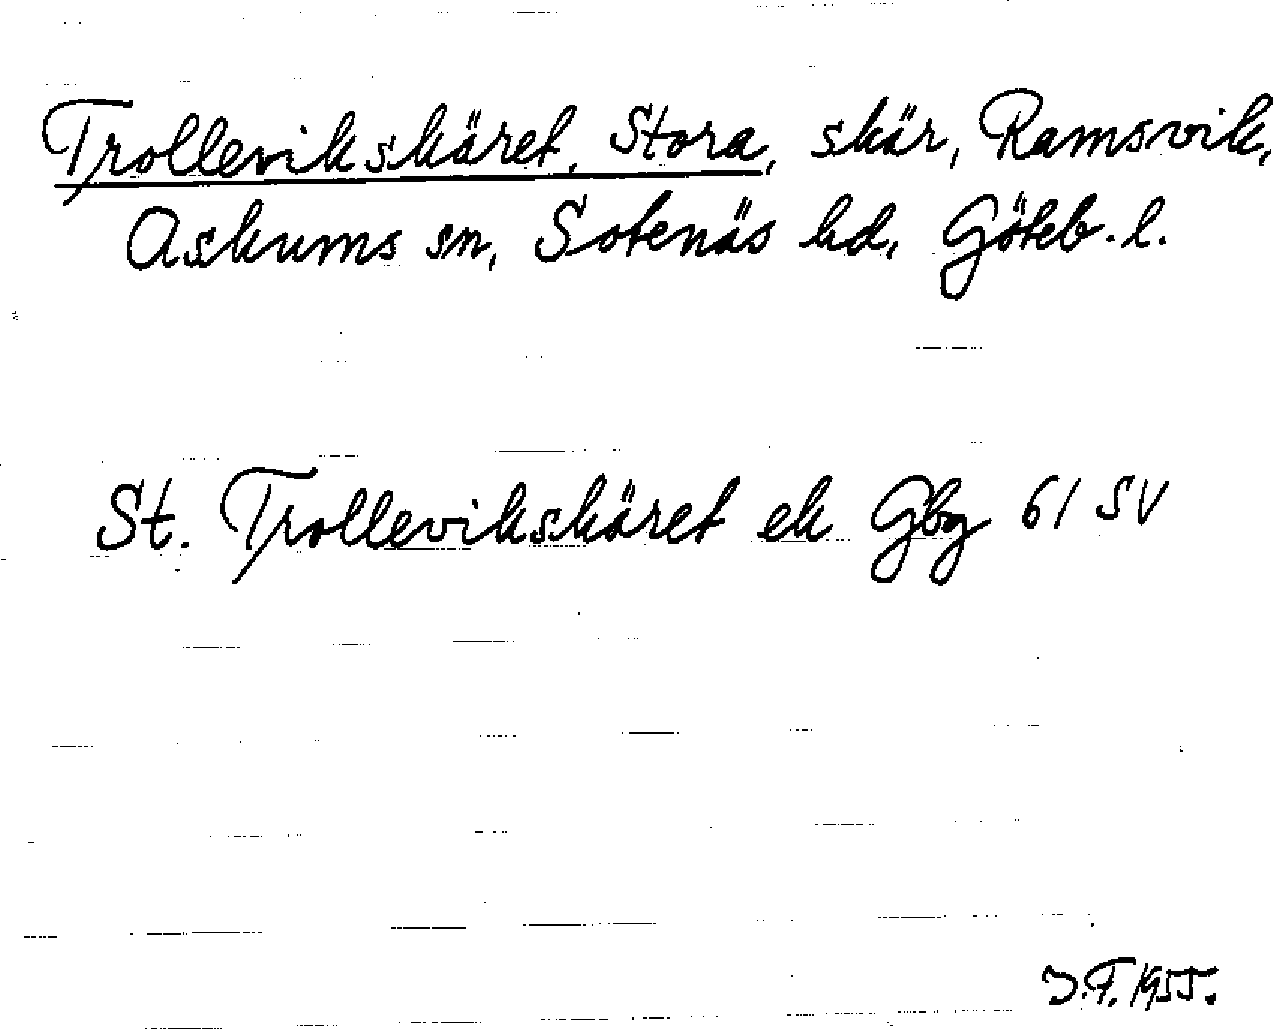 Trollevikskäret, Stora, skär, Ramsvik,
Askums sn, Sotenäs hd, Göteb. l.
St. Trollevikskäret ek Gbg 61 SV
J.F. 1955.